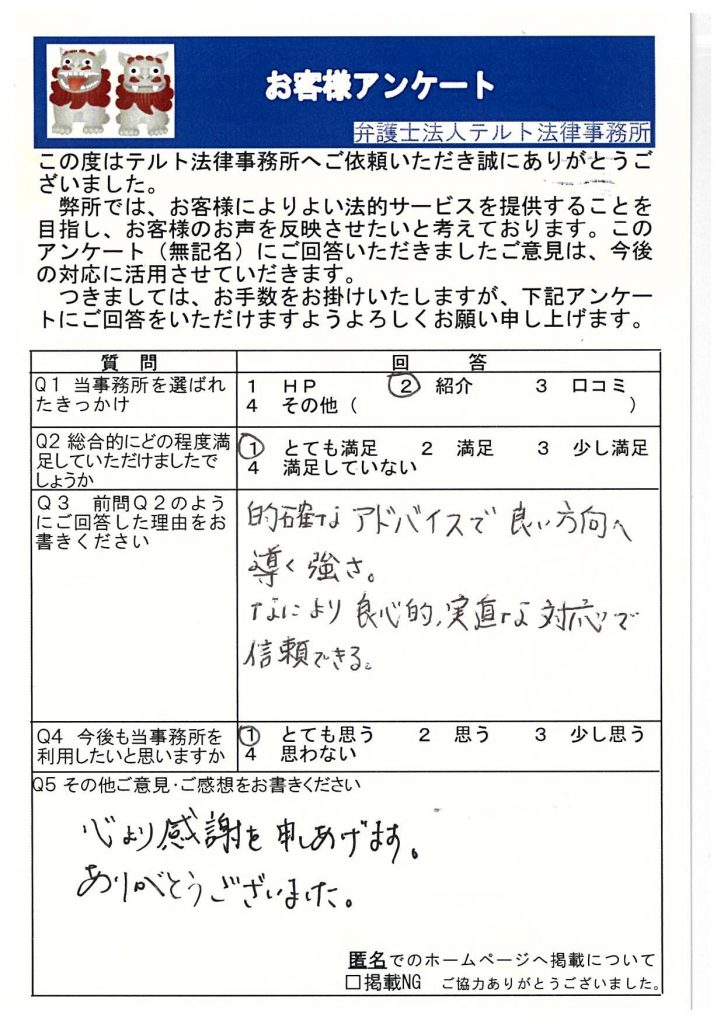 お客様アンケート
弁護士法人テルト法律事務所
この度はテルト法律事務所へご依頼いただき誠にありがとうご
ざいました。
　弊所では、お客様によりよい法的サービスを提供することを
目指し、お客様のお声を反映させたいと考えております。この
アンケート（無記名）にご回答いただきましたご意見は、今後
の対応に活用させていだきます。
　つきましては、お手数をお掛けいたしますが、下記アンケー
トにご回答をいただけますようよろしくお願い申し上げます。
質　問　回　答
Q１ 当事務所を選ばれ
たきっかけ
１　ＨＰ　２　紹介　３　口コミ
４　その他（　）
Q２ 総合的にどの程度満
足していただけましたで
しょうか
１　とても満足　２　満足　３　少し満足
４　満足していない
Q３　前問Q２のよう
にご回答した理由をお
書きください
的確なアドバイスで良い方向へ
導く強さ。
なにより良心的,実直な対応で
信頼できる。
Q４ 今後も当事務所を
利用したいと思いますか
１　とても思う　２　思う　３　少し思う
４　思わない
Q５ その他ご意見・ご感想をお書きください
心より感謝を申しあげます。
ありがとうございました。
匿名でのホームページへ掲載について
□掲載NG　ご協力ありがとうございました。